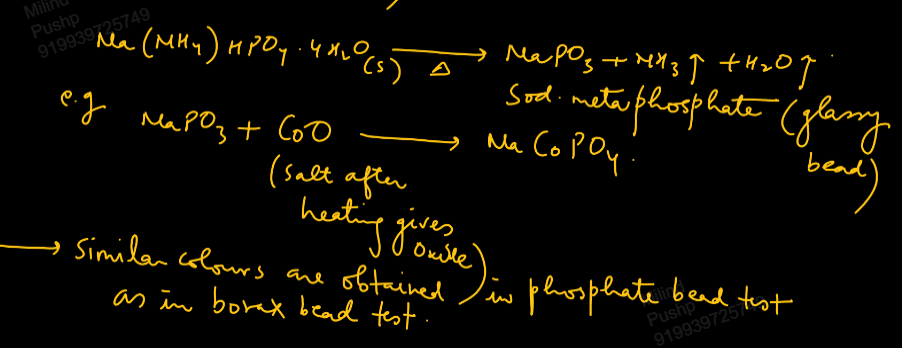 Milind
Pushp
919939725749
Na(NH4)HPO4·4H2O(s) →Δ NaPO3 + NH3↑ + H2O↑
Sod. metaphosphate (glassy bead)
e.g NaPO3 + CoO → NaCoPO4.
(salt after
heating gives
oxide)
→ Similar colours are obtained in phosphate bead test
as in borax bead test.
Pushp
919939725749